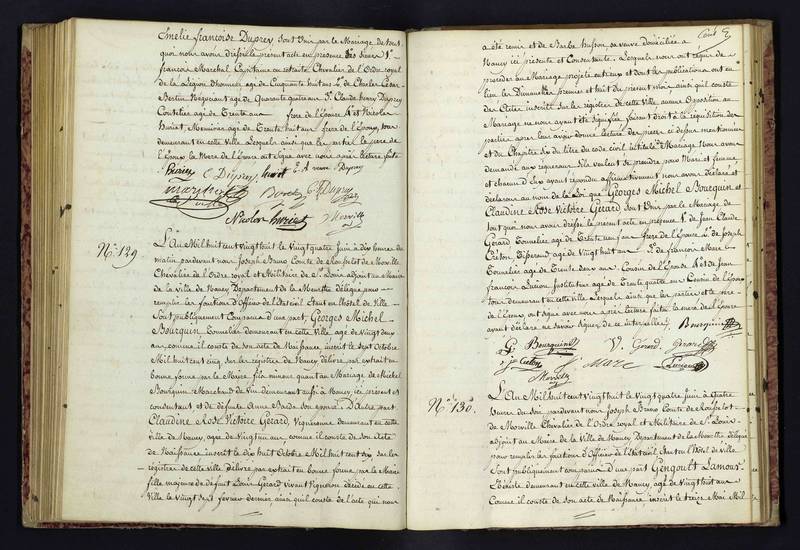 Emélie françoise Duprey sont unis par le Mariage de tout
quoi nous avons dressé le présent acte en présence des Sieurs 1°
françois Marchal Capitaine en retraite Chevalier de l'Ordre royal
de la Légion d'honneur agé de Cinquante huit ans 2° de Charles César
Bertin Négociant agé de Quarante quatre ans 3° Claude henry Duprey
Coutelier agé de Trente ans frere de l'épouse 4° et Nicolas
huriet Menuisier agé de Trente huit ans frere de l'époux, tous
demeurant en cette Ville Lesquels ainsi que les parties le pere de
l'époux la Mere de l'épouse ont signé avec nous après lecture faite
huriet E Duprey huriet E A veuve Duprey
marchal Bertin C h Duprey
Nicolas huriet Morville
N°. 129
L'An Mil huit cent vingt huit le vingt quatre Juin à dix heures du
matin pardevant nous Joseph Bruno Comte de Rouyn de Morville
Chevalier de l'Ordre royal et Militaire de St Louis adjoint au Maire
de la Ville de Nancy Département de la Meurthe délégué pour
remplir les fonctions d'Officier de l'état civil Etant en l'hôtel de Ville
Sont publiquement Comparus d'une part, Georges Michel
Bourguin Tonnelier demeurant en cette Ville agé de Vingt deux
ans, comme il conste de son acte de Naissance inscrit le sept Octobre
Mil huit cent cinq sur les registres de Nancy délivré par extrait en
bonne forme par le Maire fils mineur quant au Mariage de Michel
Bourguin Marchand de Vin demeurant aussi à Nancy ici présent et
consentant et de défunte Anne Barbe son épouse D'Autre part
Claudine Rose Victoire Gérard, Vigneronne demeurant en cette
ville de Nancy, agée de Vingt un ans comme il conste de son Acte
de Naissance inscrit le dix huit Octobre Mil huit cent six sur les
registres de cette ville délivré par extrait en bonne forme par le Maire
fille majeure de défunt Louis Gérard vivant Vigneron décédé en cette
Ville le Vingt sept février dernier, ainsi qu'il conste de l'acte qui nous
a été remis et de Barbe husson, sa veuve domiciliée à
Nancy ici présente et Consentante. Lesquels nous ont requis de
procéder au Mariage projeté entr'eux et dont les publications ont eu
lieu les Dimanches premier et huit du présent mois ainsi qu'il conste
des Actes inscrits sur les registres de cette Ville aucune Opposition au
Mariage ne nous ayant été signifiée faisant droit à la réquisition des
parties après leur avoir donné lecture des pièces ci dessus mentionnées
et du Chapitre six du titre du code civil intitulé du Mariage Nous avons
demandé aux requérans s'ils veulent se prendre pour Mari et femme
et chacun d'eux ayant répondu affirmativement nous avons déclaré et
déclarons au nom de la Loi que Georges Michel Bourguin et
Claudine Rose Victoire Gérard sont Unis par le Mariage de
tout quoi nous avons dressé le présent acte en présence 1° de Jean Claude
Gérard Tonnelier agé de Trente un ans frere de l'épouse 2° de Joseph
agé de Vingt huit ans 3° de francois Marc
Tonnelier agé de Trente deux ans Cousin de l'épouse 4° et de Jean
françois Instituteur agé de Trente quatre ans Cousin de l'époux
tous demeurant en cette ville Lesquels ainsi que les parties et le pere
de l'époux ont signé avec nous après lecture faite la mere de l'épouse
ayant déclaré ne savoir signer de ce interpellée Bourguin
G. Bourguin V. Gérard Gerard
Marc
Morville
N°. 130.
L'An Mil huit cent vingt huit le vingt quatre Juin à Quatre
heures du soir pardevant nous Joseph Bruno Comte de Rouyn
de Morville Chevalier de l'Ordre royal et Militaire de St Louis
adjoint au Maire de la Ville de Nancy Département de la Meurthe délégué
pour remplir les fonctions d'Officier de l'état civil Etant en l'hôtel de Ville
Sont publiquement comparus d'une part Gengoult Lamour
demeurant en cette ville de Nancy, agé de Vingt huit ans
Comme il conste de son acte de Naissance inscrit le treize Mai Mil